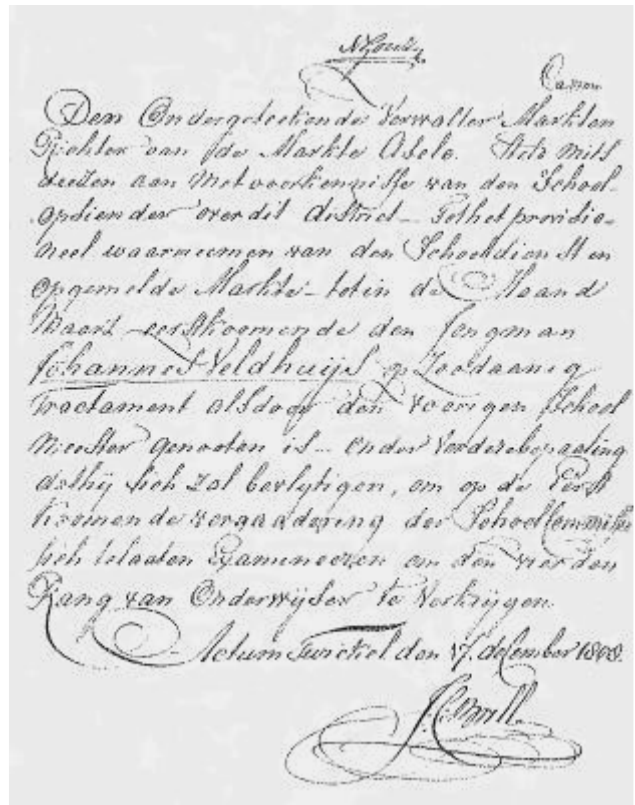 Den Ondergeteekende Verwalter Markten
Richter van de Markte Asele. Stets mits
deezen aan Met voorkennisse van den School-
opziender over dit district – Tot het providio-
neel waarneemen van den Schooldienst in
opgemelde Markte – tot in de Maand
Maart eerstkoomende den Jongman
Johannes Veldhuijs op Zoodaanig
Tractament als door den voorigen School
Meester genooten is – onder verdere bepaaling
dat hij sich zal bevlytigen, om op de Eerst
koomende vergaadering der Schoolcommissie
sich te laaten Examineeren om den vierden
Rang van Onderwijser te Verkrijgen.
Actum Twickel den 17. december 1808.